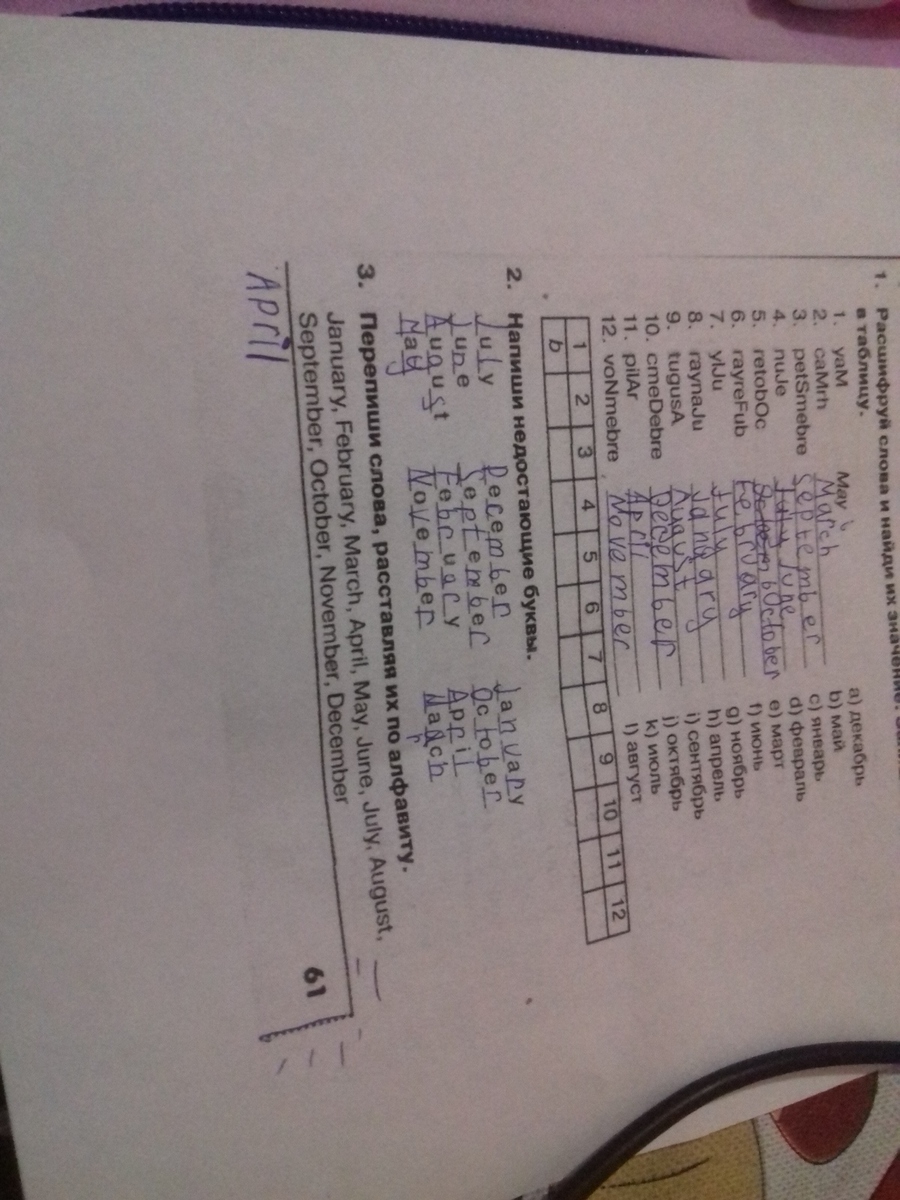 1. Расшифруй слова и найди их значение.
в таблицу.
1. yaM May b
2. caMrh March
3. petSmebre September
4. nuJe June
5. retobOc October
6. rayreFub February
7. ylJu July
8. raynaJu January
9. tugusA August
10. cmeDebre December
11. pilAr April
12. voNmebre November
a) декабрь
b) май
c) январь
d) февраль
e) март
f) июнь
g) ноябрь
h) апрель
i) сентябрь
j) октябрь
k) июль
l) август
1 2 3 4 5 6 7 8 9 10 11 12
b
2. Напиши недостающие буквы.
July December January
June September October
August February April
May November March
3. Перепиши слова, расставляя их по алфавиту.
January, February, March, April, May, June, July, August,
September, October, November, December
61
April